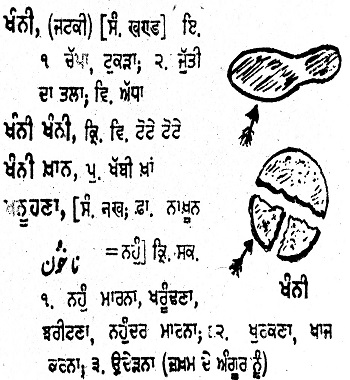 ਖੰਨੀ, (ਜਟਕੀ) [ਸੰ. ਖਣ੍ਡ] ਇ.
੧ ਚੱਪਾ, ਟੁਕੜਾ; ੨. ਜੁੱਤੀ
ਦਾ ਤਲਾ; ਵਿ. ਅੱਧਾ
ਖੰਨੀ ਖੰਨੀ, ਕ੍ਰਿ. ਵਿ. ਟੋਟੇ ਟੋਟੇ
ਖੰਨੀ ਖ਼ਾਨ, ਪੁ. ਖੱਬੀ ਖ਼ਾਂ
ਖਨੂਹਣਾ, [ਸੰ. ਨਖ; ਫ਼ਾ. ਨਾਖ਼ੂਨ
ناخُون =ਨਹੁੰ] ਕ੍ਰਿ. ਸਕ.
੧. ਨਹੁੰ ਮਾਰਨਾ, ਖਰੂੰਢਣਾ,
ਝਰੀਟਣਾ, ਨਹੁੰਦਰ ਮਾਰਨਾ; ੨. ਖੁਰਕਣਾ, ਖਾਜ
ਕਰਨਾ; ੩. ਉਦੇੜਨਾ (ਜ਼ਖ਼ਮ ਦੇ ਅੰਗੂਰ ਨੂੰ)
ਖੰਨੀ